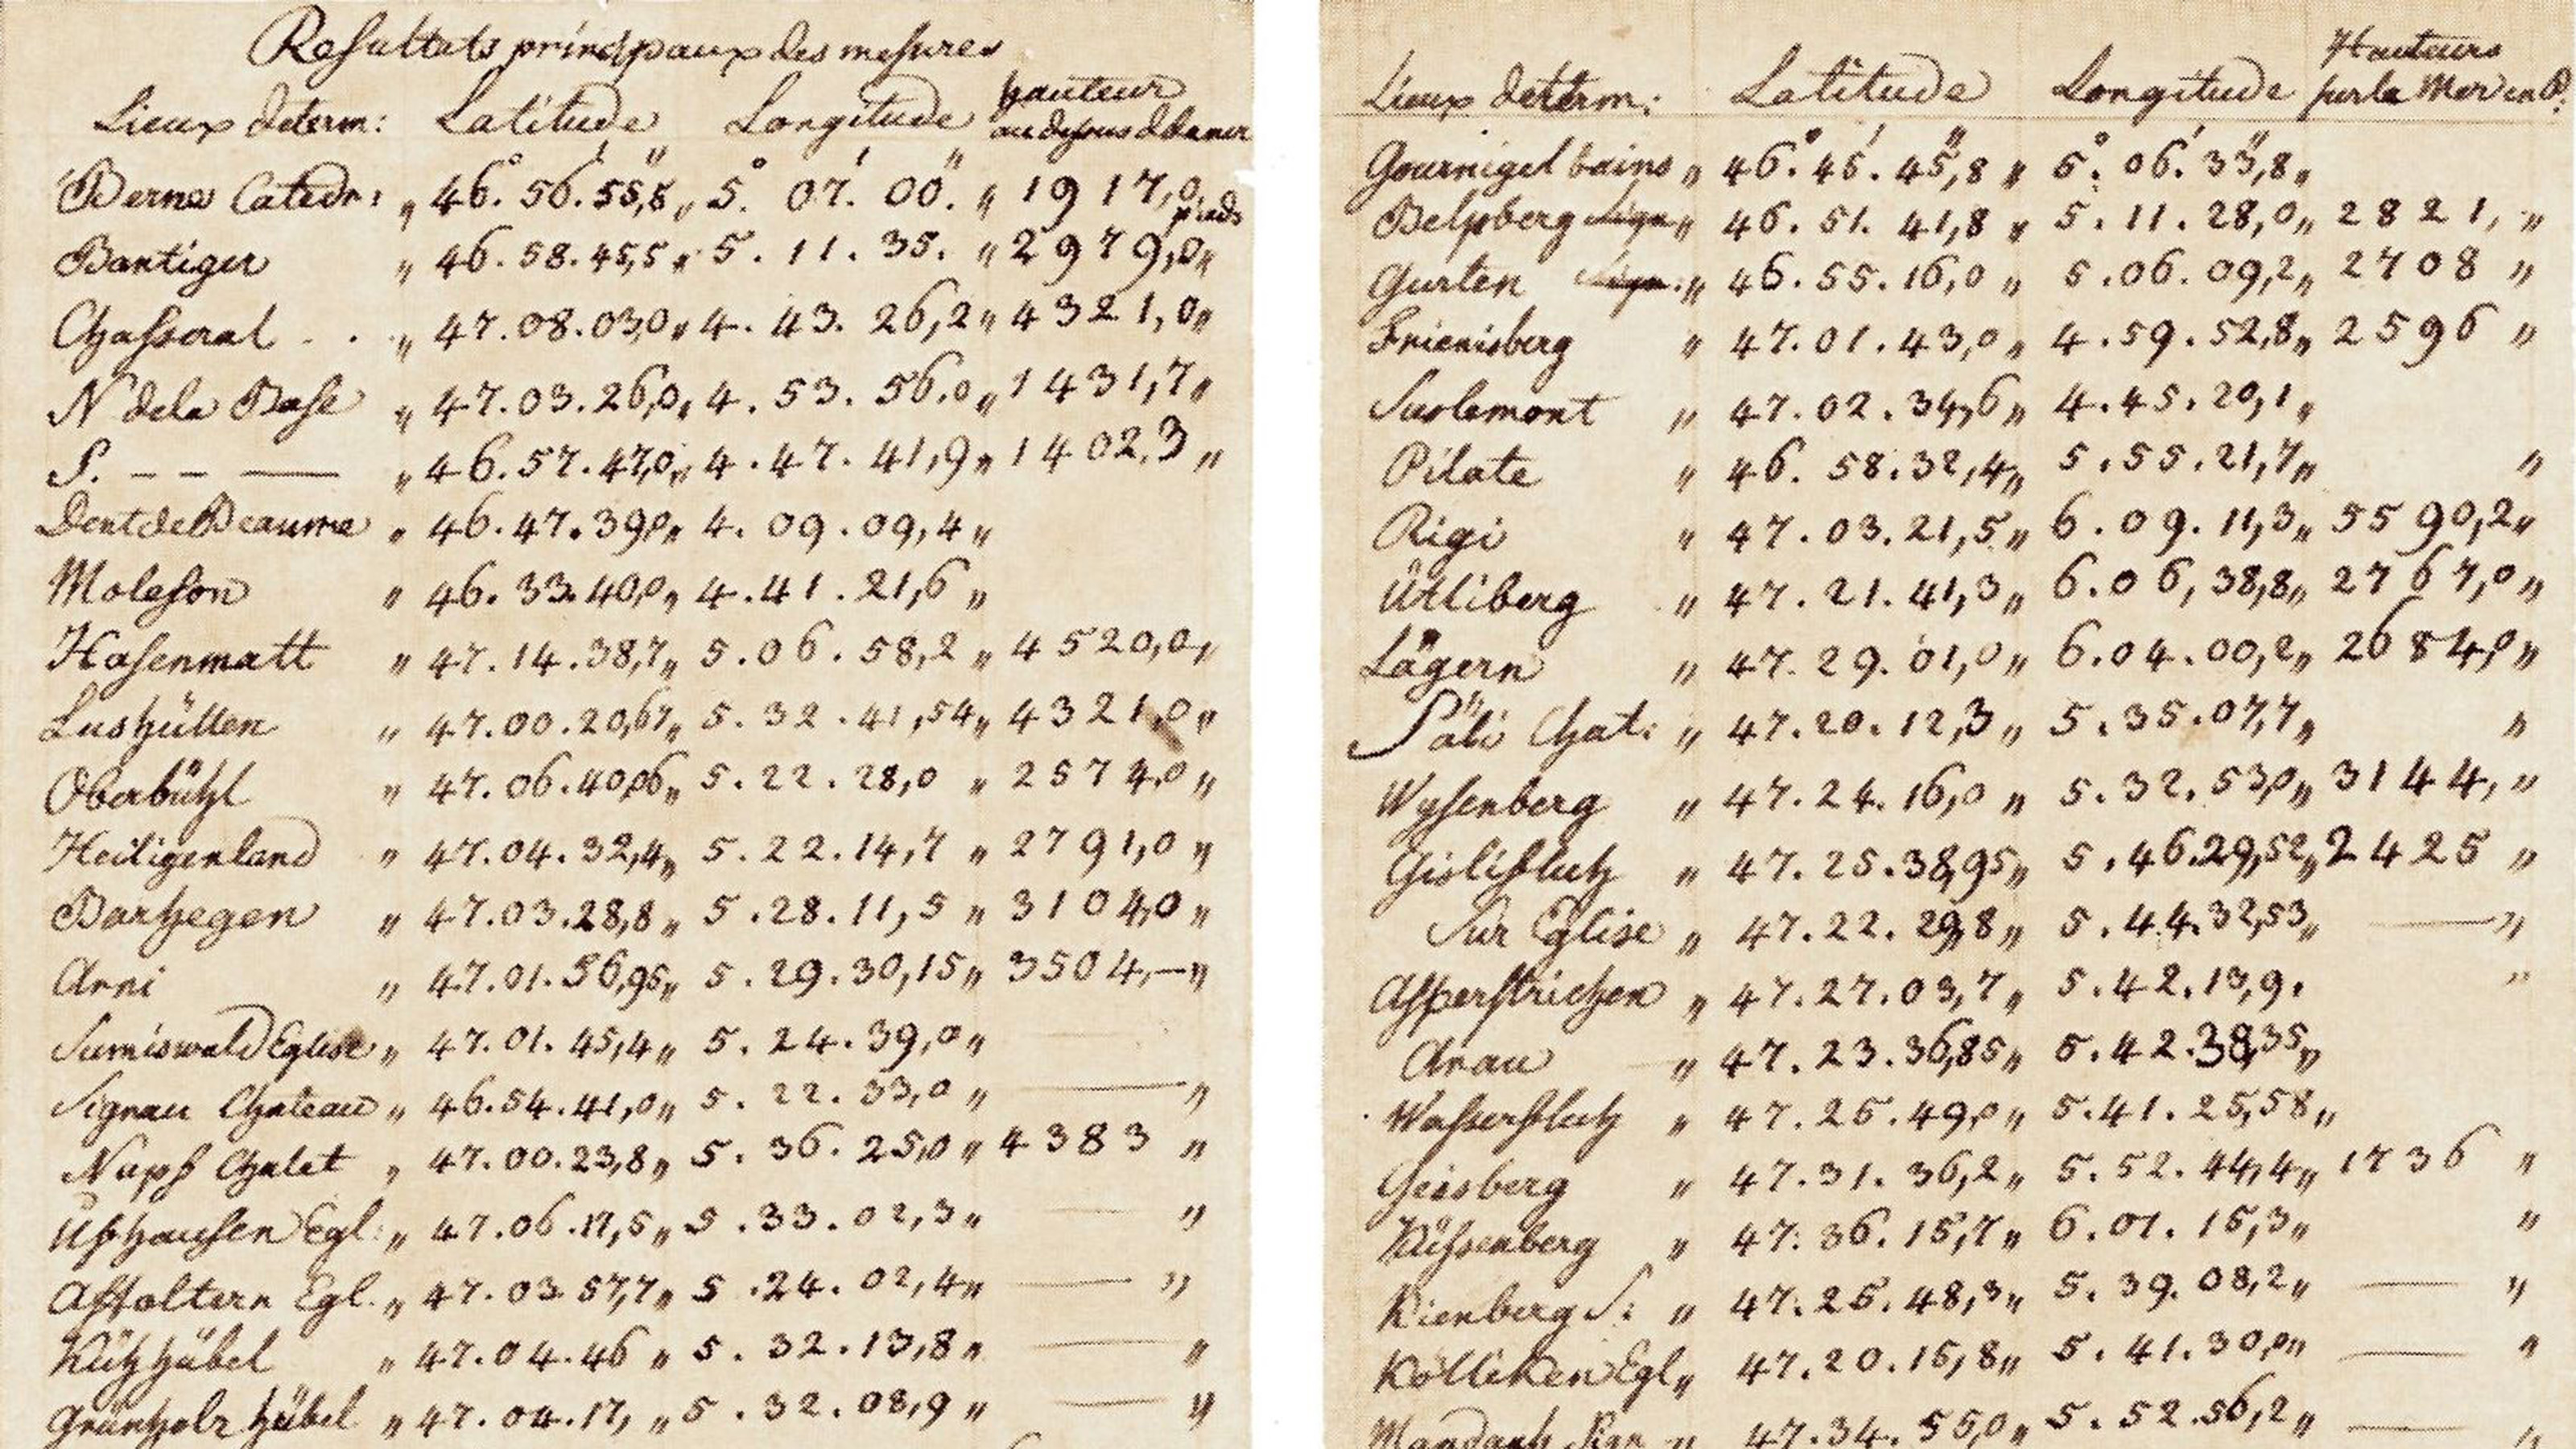 Resultats principaux des mesures
Lieux determ: Latitude Longitude hauteur au dessous d la mer
Berne Catedr: „ 46°. 56'. 55",8 „ 5°. 07'. 00". „ 1917,0 pieds
Bantiger „ 46. 58. 45,5 „ 5. 11. 35. „ 2979,0 „
Chasseral . . „ 47. 08. 03,0 „ 4. 43. 26,2 „ 4321,0 „
N dela Base „ 47. 03. 26,0 „ 4. 53. 56.0 „ 1431,7 „
S. – – — „ 46. 57. 47,0 „ 4. 47. 41,9 „ 1402,3 „
Dent de Beaume „ 46. 47. 39,0 „ 4. 09. 09,4 „
Moleson „ 46. 33. 40,0 „ 4. 41. 21,6 „
Hasenmatt „ 47. 14. 38,7 „ 5. 06. 58,2 „ 4520,0 „
Lushütten „ 47. 00. 20,67 „ 5. 32. 41,54 „ 4321,0 „
Oberbühl „ 47. 06. 40,06 „ 5. 22. 28,0 „ 2574,0 „
Heiligenland „ 47. 04. 32,4 „ 5. 22. 14,7 „ 2791,0 „
Barhegen „ 47. 03. 28,8 „ 5. 28. 11,5 „ 3104,0 „
Arni „ 47. 01. 56,95 „ 5. 29. 30,15 „ 3504,— „
Sumiswald Eglise „ 47. 01. 45,4 „ 5. 24. 39,0 „
Signau Chateau „ 46. 54. 41,0 „ 5. 22. 33,0 „ — „
Napf Chalet „ 47. 00. 23,8 „ 5. 36. 25,0 „ 4383 „
Ufhausen Egl: „ 47. 06. 17,5 „ 5. 33. 02,3 „ — „
Affoltern Egl. „ 47. 03 57,7 „ 5. 24. 02,4 „ — „
hübel „ 47. 04. 46 „ 5. 32. 13,8 „ — „
Grünholz hübel „ 47. 04. 17, „ 5. 32. 08,9 „ — „
Lieux determ: Latitude Longitude Hauteurs sur la Mer en P:
Gournigel bains „ 46°. 45'. 45",8 „ 5°. 06'. 33",8 „
Belpberg Sign „ 46. 51. 41,8 „ 5. 11. 28,0 „ 2821, „
Gurten Sign: „ 46. 55. 16,0 „ 5. 06. 09,2 „ 2708 „
Frienisberg „ 47. 01. 43,0 „ 4. 59. 52,8 „ 2596 „
Suslemont „ 47. 02. 34,6 „ 4. 45. 20,1 „
Pilate „ 46. 58. 32,4 „ 5. 55. 21,7 „ „
Rigi „ 47. 03. 21,5 „ 6. 09. 11,3 „ 5590,2 „
Ütliberg „ 47. 21. 41,3 „ 6. 06, 38,8 „ 2767,0 „
Lägern „ 47. 29. 01,0 „ 6. 04. 00,2 „ 2684,0 „
Säli Chat: „ 47. 20. 12,3 „ 5. 35. 07,7 „ „
Wysenberg „ 47. 24. 16,0 „ 5. 32. 53,0 „ 3144, „
Gislifluh „ 47. 25. 38,95 „ 5. 46. 29,52 „ 2425 „
Sur Eglise „ 47. 22. 29,8 „ 5. 44. 32,53 „ — „
Asperstrichen „ 47. 27. 03,7 „ 5. 42. 13,9. „
Arau „ 47. 23. 36,85 „ 5. 42. 38,35 „
Wasserfluh „ 47. 25. 49,0 „ 5. 41. 25,58 „
Geisberg „ 47. 31. 36,2 „ 5. 52. 44,4 „ 1736 „
Küssenberg „ 47. 36. 15,7 „ 6. 01. 15,3 „ „
Kienberg S: „ 47. 25. 48,3 „ 5. 39. 08,2 „ — „
Kölliken Egl „ 47. 20. 15,8 „ 5. 41. 30,0 „ — „
Mandach Sign „ 47. 34. 55,0 „ 5. 52. 56,2 „ — „